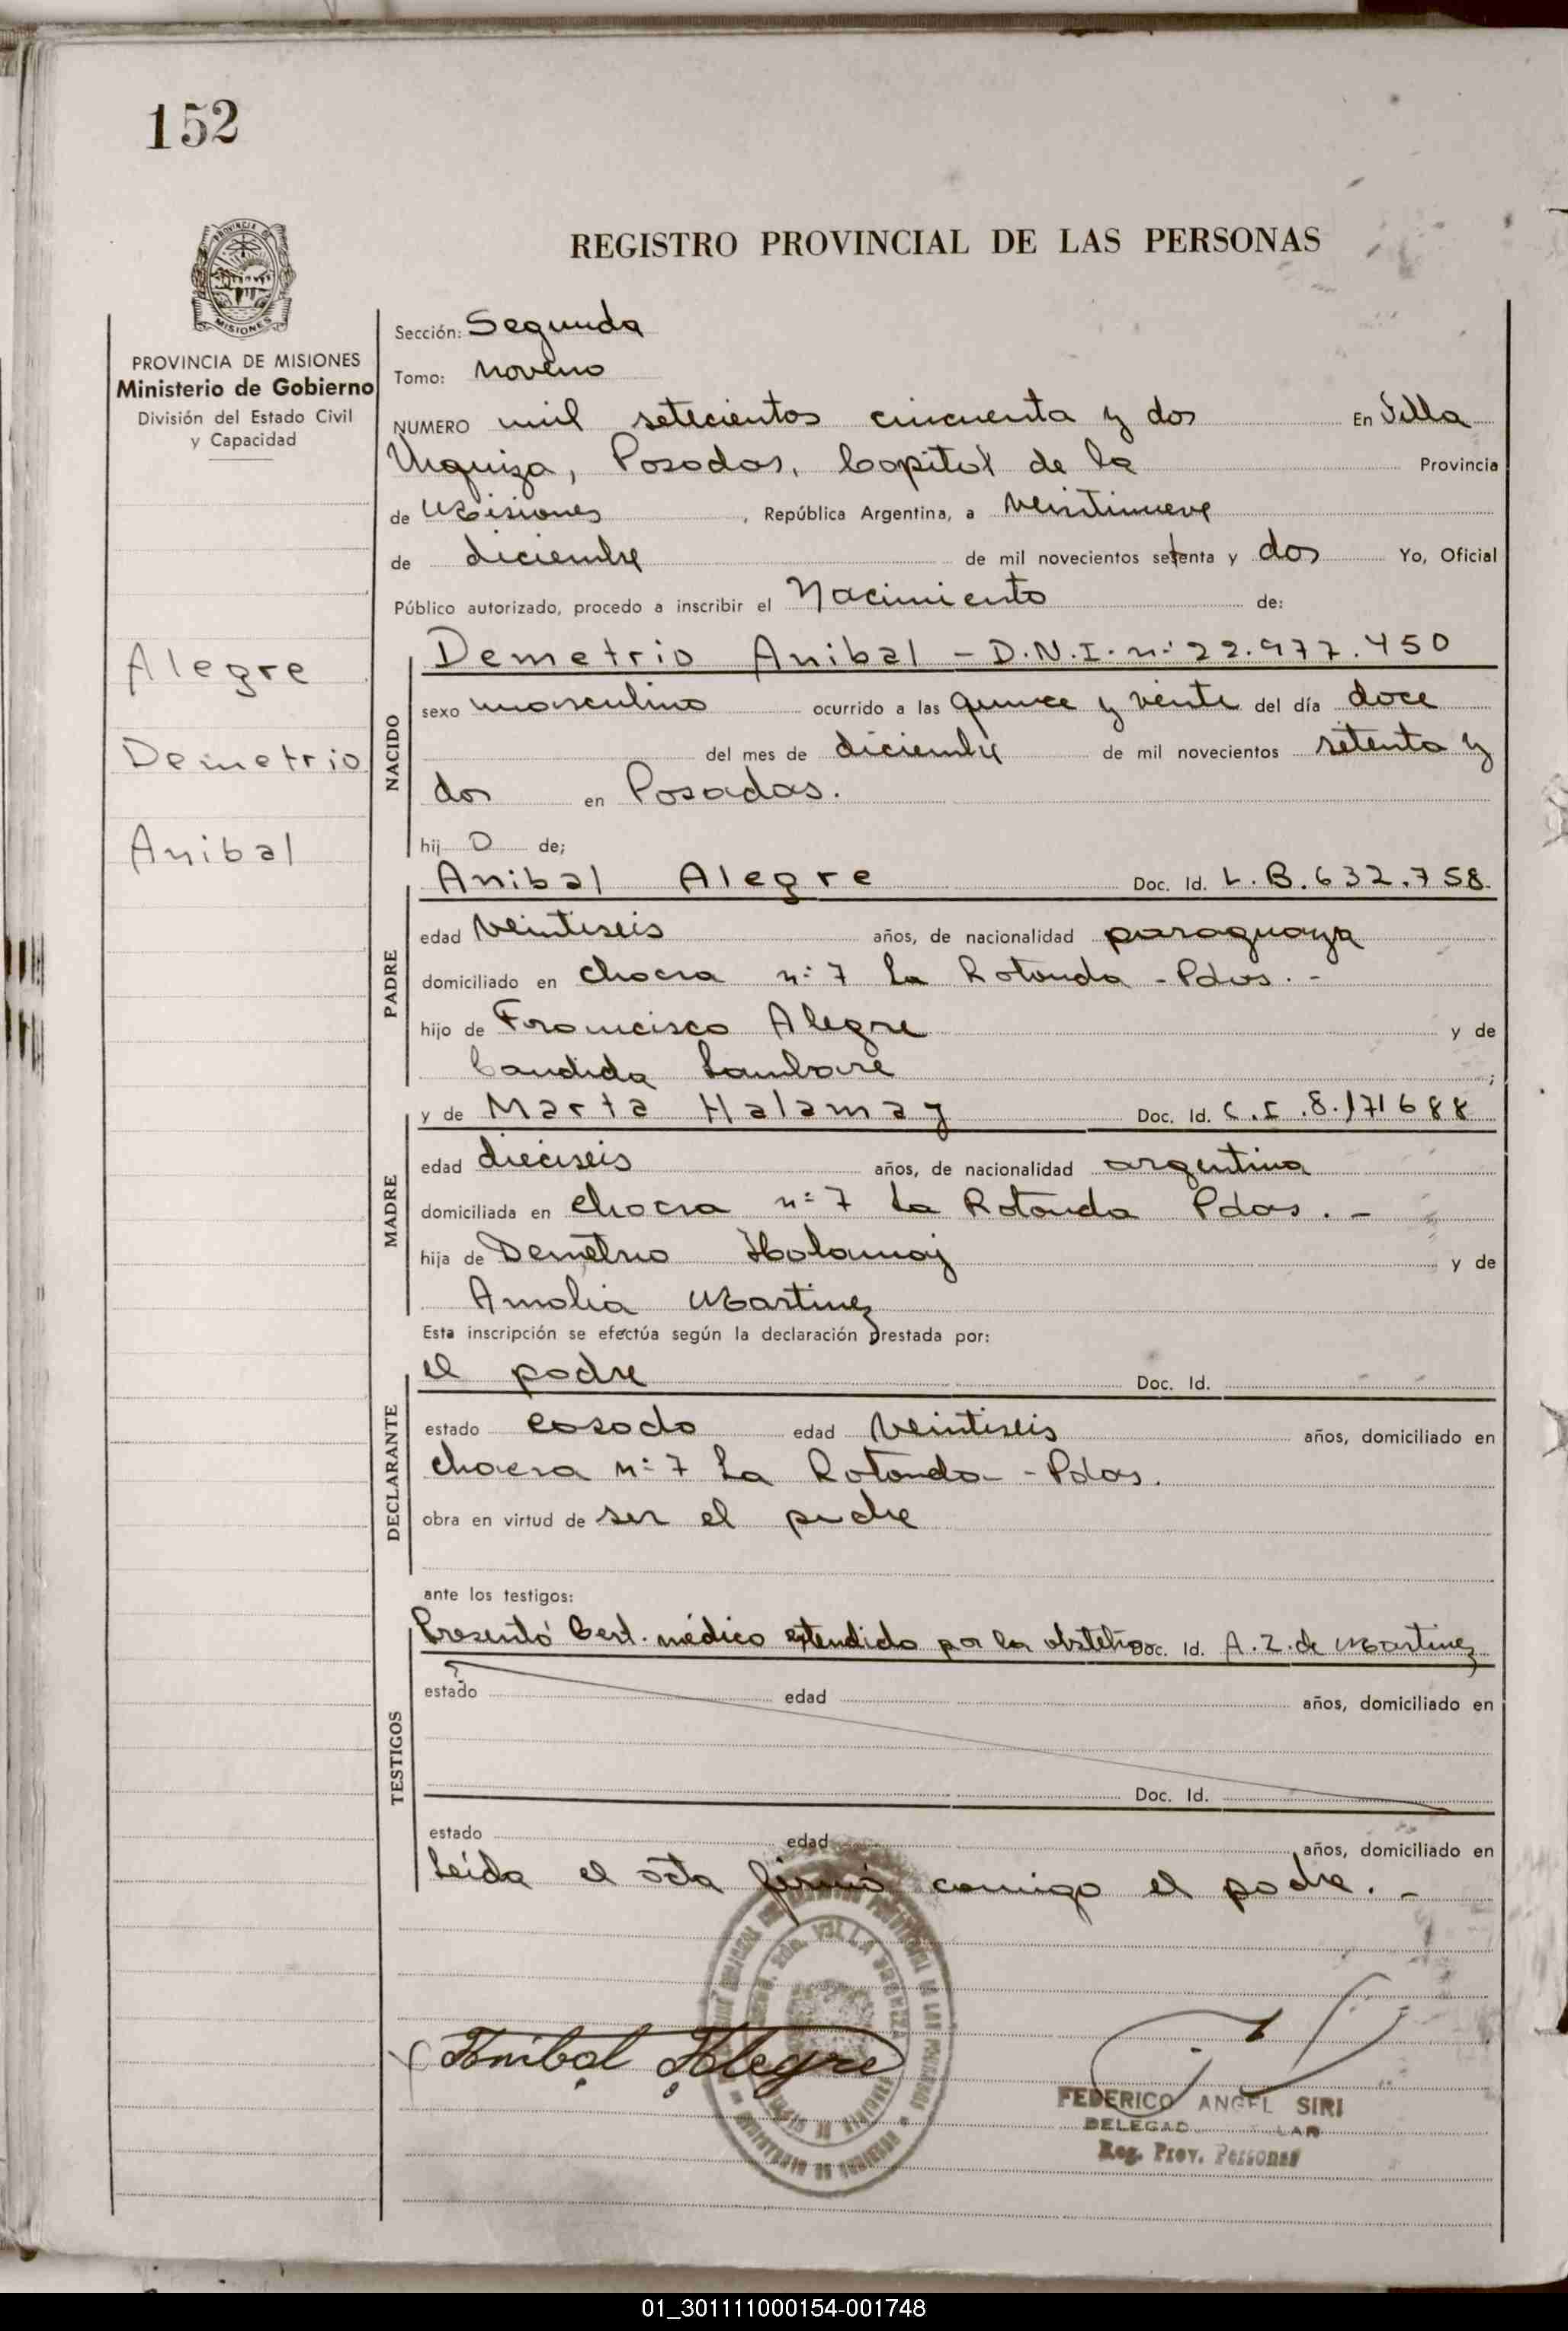 152
REGISTRO PROVINCIAL DE LAS PERSONAS
PROVINCIA DE MISIONES
Ministerio de Gobierno
División del Estado Civil
y Capacidad
Alegre
Demetrio
Anibal
Sección: Segunda
Tomo: noveno
NUMERO mil setecientos cincuenta y dos En Villa
Urquiza, Posadas, Capital de la Provincia
de Misiones, República Argentina, a veintinueve
de diciembre de mil novecientos setenta y dos Yo, Oficial
Público autorizado, procedo a inscribir el Nacimiento de:
NACIDO
Demetrio Anibal - D.N.I. nº 22.977.450
sexo masculino ocurrido a las quince y veinte del día doce
del mes de diciembre de mil novecientos setenta y
dos en Posadas.
hij o de;
PADRE
Anibal Alegre Doc. Id. L.B. 632.758
edad veintiseis años, de nacionalidad paraguaya
domiciliado en chacra nº 7 La Rotonda - Pdas. -
hijo de Francisco Alegre y de
Candida Lambaré ;
MADRE
y de Marta Halamay Doc. Id. C.I. 8.171688
edad dieciseis años, de nacionalidad argentina
domiciliada en chacra nº 7 La Rotonda Pdas. -
hija de Demetrio Halamaj y de
Amalia Martinez
Esta inscripción se efectúa según la declaración prestada por:
DECLARANTE
el padre Doc. Id.
estado casado edad veintiseis años, domiciliado en
chacra nº 7 La Rotonda - Pdas.
obra en virtud de ser el padre
ante los testigos:
TESTIGOS
Presentó Cert. médico extendido por la obstetra Doc. Id. A. Z. de Martinez
estado edad años, domiciliado en
Doc. Id.
estado edad años, domiciliado en
Leída el acta firmó conmigo el padre. -
Anibal Alegre
FEDERICO ANGEL SIRI
Reg. Prov. Personas
01_301111000154-001748